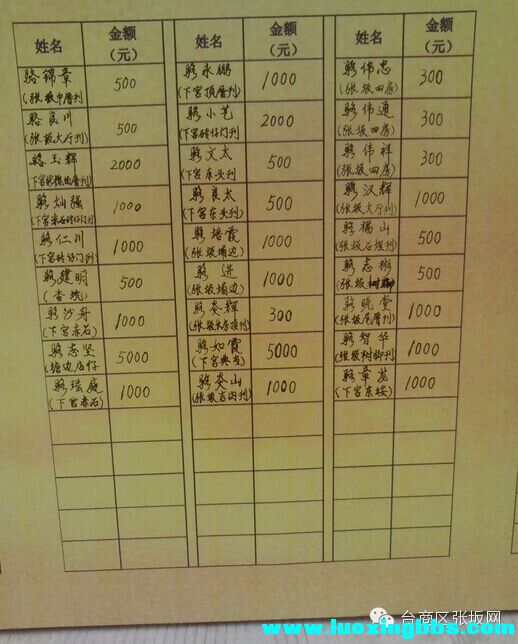 姓名 金额（元） 姓名 金额（元） 姓名 金额（元）
骆锦章 500 骆永鹏 1000 骆伟忠 300
(张坂中厝刊) (下宫顶厝刊) (张坂四房)
骆良川 500 骆小艺 2000 骆伟通 300
(张坂大厅刊) (下宫砖仔门刊) (张坂四房)
骆玉辉 2000 骆文太 500 骆伟祥 300
(下宫 厝刊) (下宫东头刊) (张坂四房)
骆灿强 1000 骆良太 500 骆汉辉 1000
(下宫 砖仔门刊) (下宫东头刊) (张坂大厅刊)
骆仁川 1000 骆培霞 1000 骆福山 500
(下宫砖仔门刊) (张坂埔边) (张坂 刊)
骆建明 500 骆进 1000 骆志彬 500
(杏坑) (张坂埔边) (张坂树脚)
骆沙舟 1000 骆奕辉 300 骆晓莹 1000
(下宫赤石) (张坂 顶刊) (张坂尾厝刊)
骆志坚 5000 骆如霞 5000 骆智华 1000
(塘边店仔) (下宫典当) (张坂树脚刊)
骆瑞庭 1000 骆奕山 1000 骆章龙 1000
(下宫赤石) (张坂 刊) (下宫东坂)
台商区张坂网
www.luoxingbbs.com